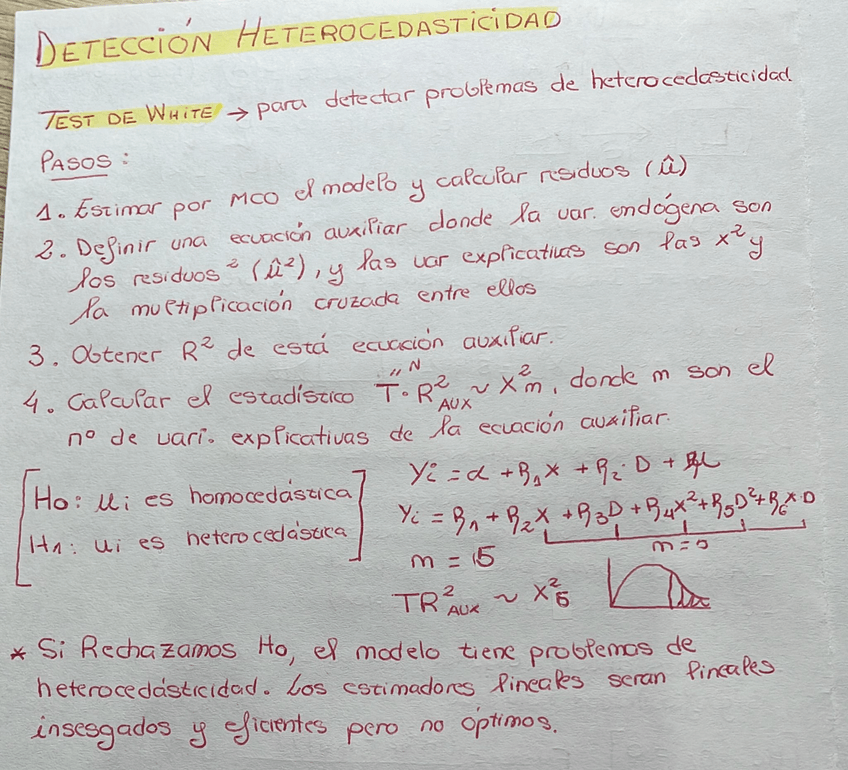 DETECCIÓN HETEROCEDASTICIDAD
TEST DE WHITE → para detectar problemas de heterocedasticidad.
PASOS:
1. Estimar por MCO el modelo y calcular residuos (û)
2. Definir una ecuación auxiliar donde la var. endógena son
los residuos² (û²), y las var explicativas son las x² y
la multiplicación cruzada entre ellos
3. Obtener R² de está ecuación auxiliar.
4. Calcular el estadístico T·R²AUX ~ X²m, donde m son el
" N
nº de vari. explicativas de la ecuación auxiliar.
H0: ui es homocedástica
H1: ui es heterocedástica
Yi = α + β1X + β2·D + μ
Yi = β1 + β2X + β3D + β4X² + β5D² + β6X·D
m = 5
m = 5
TR²AUX ~ X²5
* Si Rechazamos H0, el modelo tiene problemas de
heterocedásticidad. Los estimadores lineales seran lineales
insesgados y eficientes pero no óptimos.